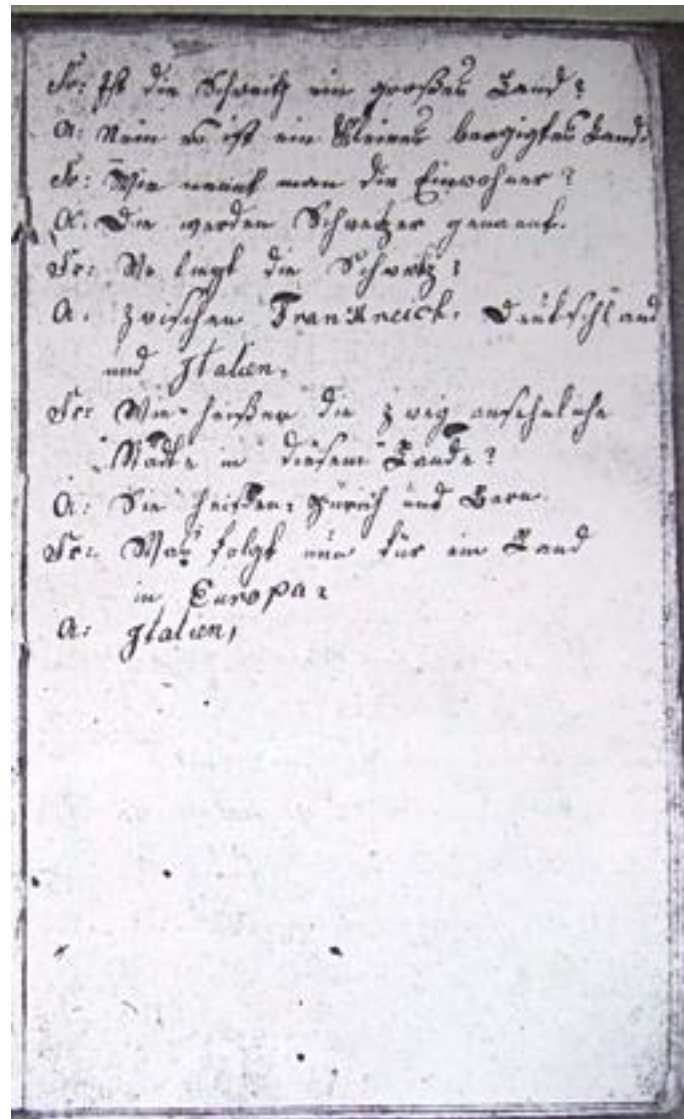 Fr: Ist die Schweitz ein großes Land?
A: Nein es ist ein kleines bergigtes Land.
Fr: Wie nennt man die Einwohner?
A: Die werden Schweitzer genannt.
Fr: Wo liegt die Schweitz?
A. Zwischen Frankreich, Deutschland
und Italien.
Fr: Wie heißen die zwey ansehnliche
Städte in diesem Lande?
A: Sie heißen: Zürich und Bern.
Fr: Was folgt nun für ein Land
in Europa?
A: Italien,